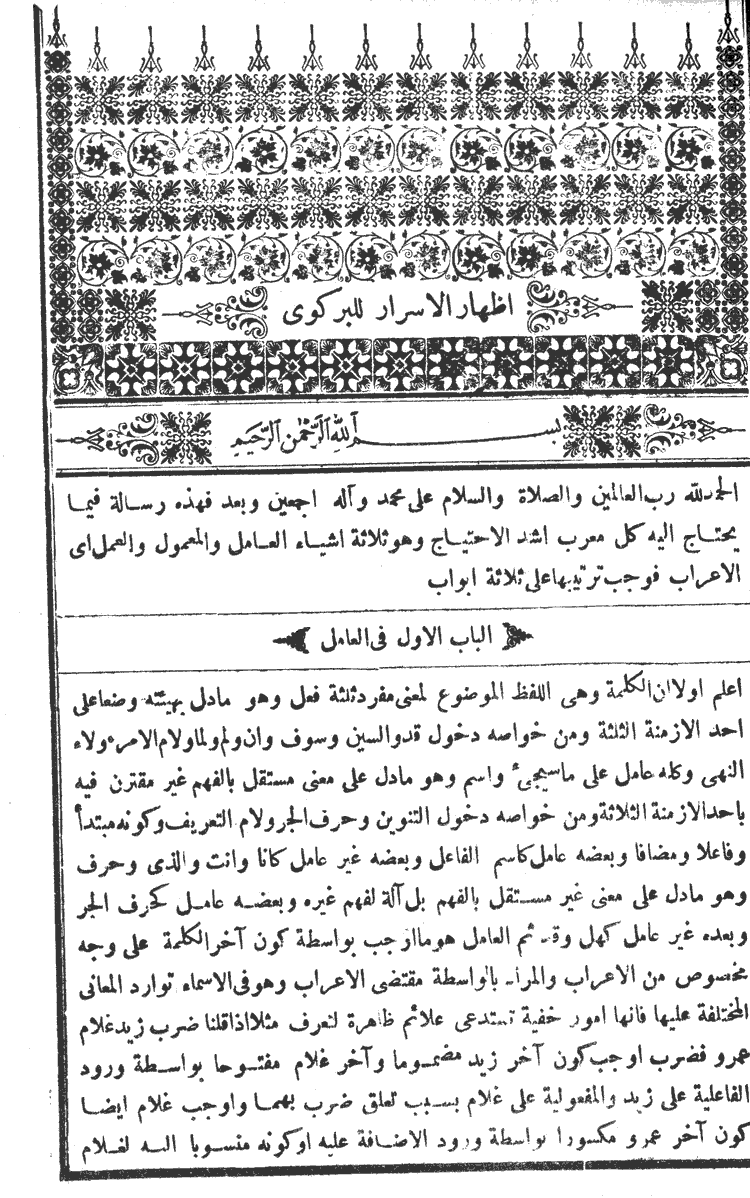 اظهار الاسرار للبركوى
بسم الله الرحمن الرحيم
الحمدلله رب العالمين والصلاة والسلام على محمد وآله اجمعين وبعد فهذه رسالة فيما
يحتاج اليه كل معرب اشد الاحتياج وهو ثلاثة اشياء العامل والمعمول والعمل اى
الاعراب فوجب ترتيبها على ثلاثة ابواب
الباب الاول فى العامل
اعلم اولا ان الكلمة وهى اللفظ الموضوع لمعنى مفرد ثلثة فعل وهو مادل بهيئته وضعا على
احد الازمنة الثلثة ومن خواصه دخول قد والسين وسوف وان ولم ولما ولام الامر ولاء
النهى وكله عامل على ماسيجئ واسم وهو مادل على معنى مستقل بالفهم غير مقترن فيه
باحد الازمنة الثلاثة ومن خواصه دخول التنوين وحرف الجر ولام التعريف وكونه مبتدأ
وفاعلا ومضافا وبعضه عامل كاسم الفاعل وبعضه غير عامل كانا وانت والذى وحرف
وهو مادل على معنى غير مستقل بالفهم بل آلة لفهم غيره وبعضه عامل كحرف الجر
وبعده غير عامل كهل وقد ثم العامل هو ما اوجب بواسطة كون آخر الكلمة على وجه
مخصوص من الاعراب والمراد بالواسطة مقتضى الاعراب وهو فى الاسماء توارد المعانى
المختلفة عليها فانها امور خفية تستدعى علائم ظاهرة لتعرف مثلا اذا قلنا ضرب زيد غلام
عمرو فضرب اوجب كون آخر زيد مضموما وآخر غلام مفتوحا بواسطة ورود
الفاعلية على زيد والمفعولية على غلام بسبب تعلق ضرب بهما واوجب غلام ايضا
كون آخر عمرو مكسورا بواسطة ورود الاضافة عليه اوكونه منسوبا اليه لغلام